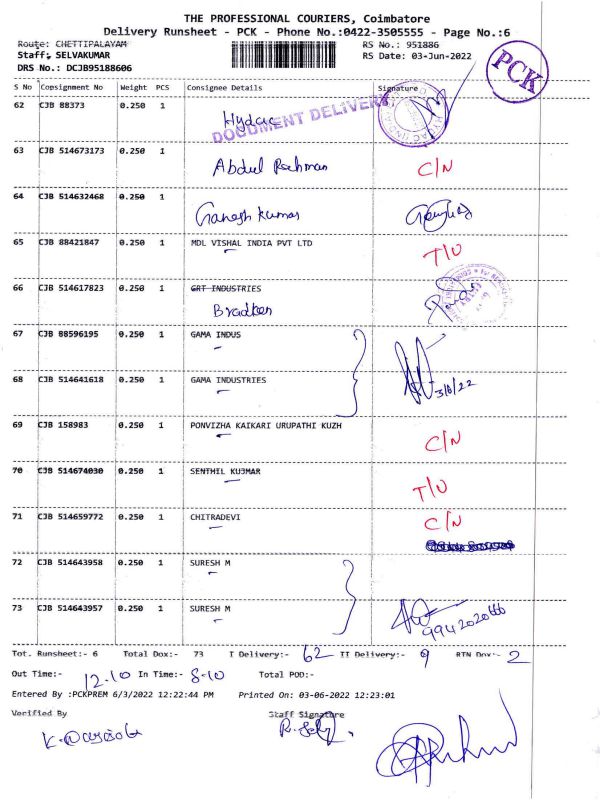 THE PROFESSIONAL COURIERS, Coimbatore
Delivery Runsheet - PCK - Phone No.:0422-3505555 - Page No.:6
Route: CHETTIPALAYAM
RS No.: 951886
Staff: SELVAKUMAR
RS Date: 03-Jun-2022
DRS No.: DCJB95188606
PCK
S No Consignment No Weight PCS Consignee Details Signature
62 CJB 88373 0.250 1 Hydac
DOCUMENT DELIVERY
63 CJB 514673173 0.250 1 Abdul Rehman C/N
64 CJB 514632468 0.250 1 Ganesh Kumar
65 CJB 88421847 0.250 1 MDL VISHAL INDIA PVT LTD T/U
66 CJB 514617823 0.250 1 GRT INDUSTRIES
Bradken
67 CJB 88596195 0.250 1 GAMA INDUS
68 CJB 514641618 0.250 1 GAMA INDUSTRIES 3/6/22
69 CJB 158983 0.250 1 PONVIZHA KAIKARI URUPATHI KUZH C/N
70 CJB 514674030 0.250 1 SENTHIL KUJMAR T/U
71 CJB 514659772 0.250 1 CHITRADEVI C/N
72 CJB 514643958 0.250 1 SURESH M
73 CJB 514643957 0.250 1 SURESH M
Tot. Runsheet:- 6 Total Dox:- 73 I Delivery:- 62 II Delivery:- 9 RTN Dox:- 2
Out Time:- 12.10 In Time:- 8-10 Total POD:-
Entered By :PCKPREM 6/3/2022 12:22:44 PM Printed On: 03-06-2022 12:23:01
Verified By Staff Signature